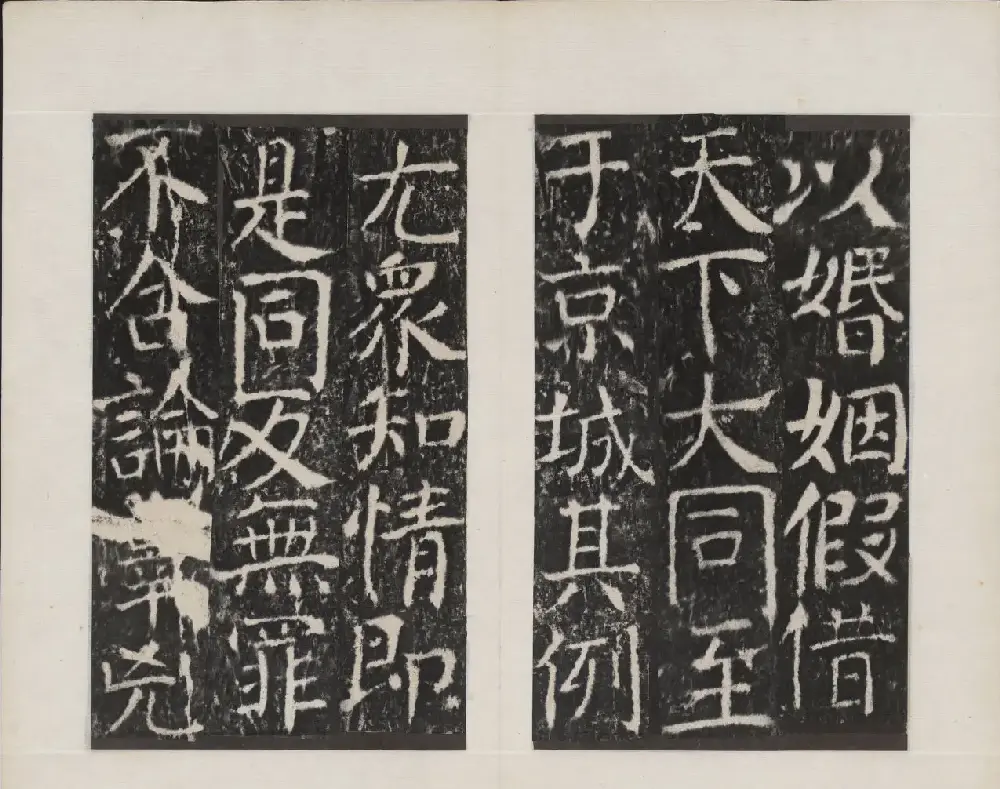 以婚姻假借
天下大同至
于京城其例
尤衆知情即
是同反無罪
不合論兇